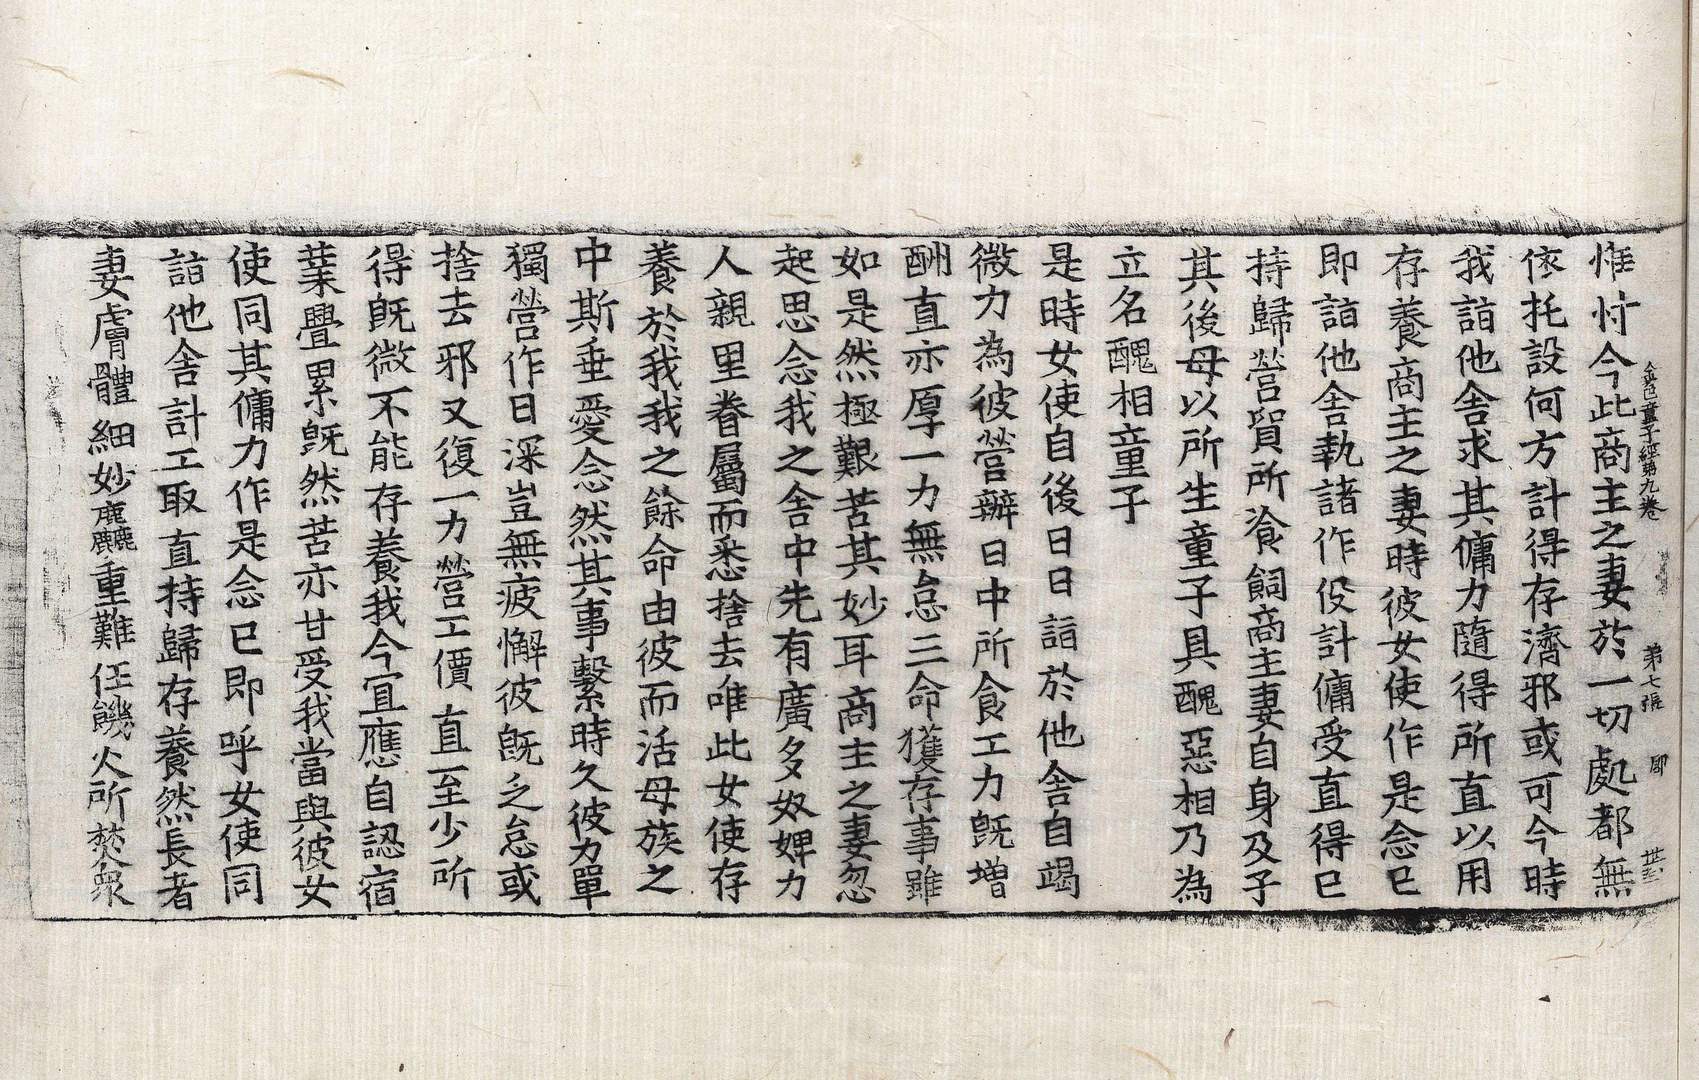 金色童子經第九卷 第七張 㓛
惟忖今此商主之妻於一切處都無
依托設何方計得存濟邪或可今時
我詣他舍求其傭力隨得所直以用
存養商主之妻時彼女使作是念已
即詣他舍執諸作役計傭受直得已
持歸營貿所飡飼商主妻自身及子
其後母以所生童子具醜惡相乃為
立名醜相童子
是時女使自後日日詣於他舍自竭
微力為彼營辦日中所食工力旣增
酬直亦厚一力無怠三命獲存事雖
如是然極艱苦其妙耳商主之妻忽
起思念我之舍中先有廣多奴婢力
人親里眷屬而悉捨去唯此女使存
養於我我之餘命由彼而活母族之
中斯垂愛念然其事繫時久彼力單
獨營作日深豈無疲懈彼旣乏怠或
捨去邪又復一力營工價直至少所
得旣微不能存養我今宜應自認宿
業疊累旣然苦亦甘受我當與彼女
使同其傭力作是念已即呼女使同
詣他舍計工取直持歸存養然長者
妻膚體細妙麤重難任饑火所焚衆